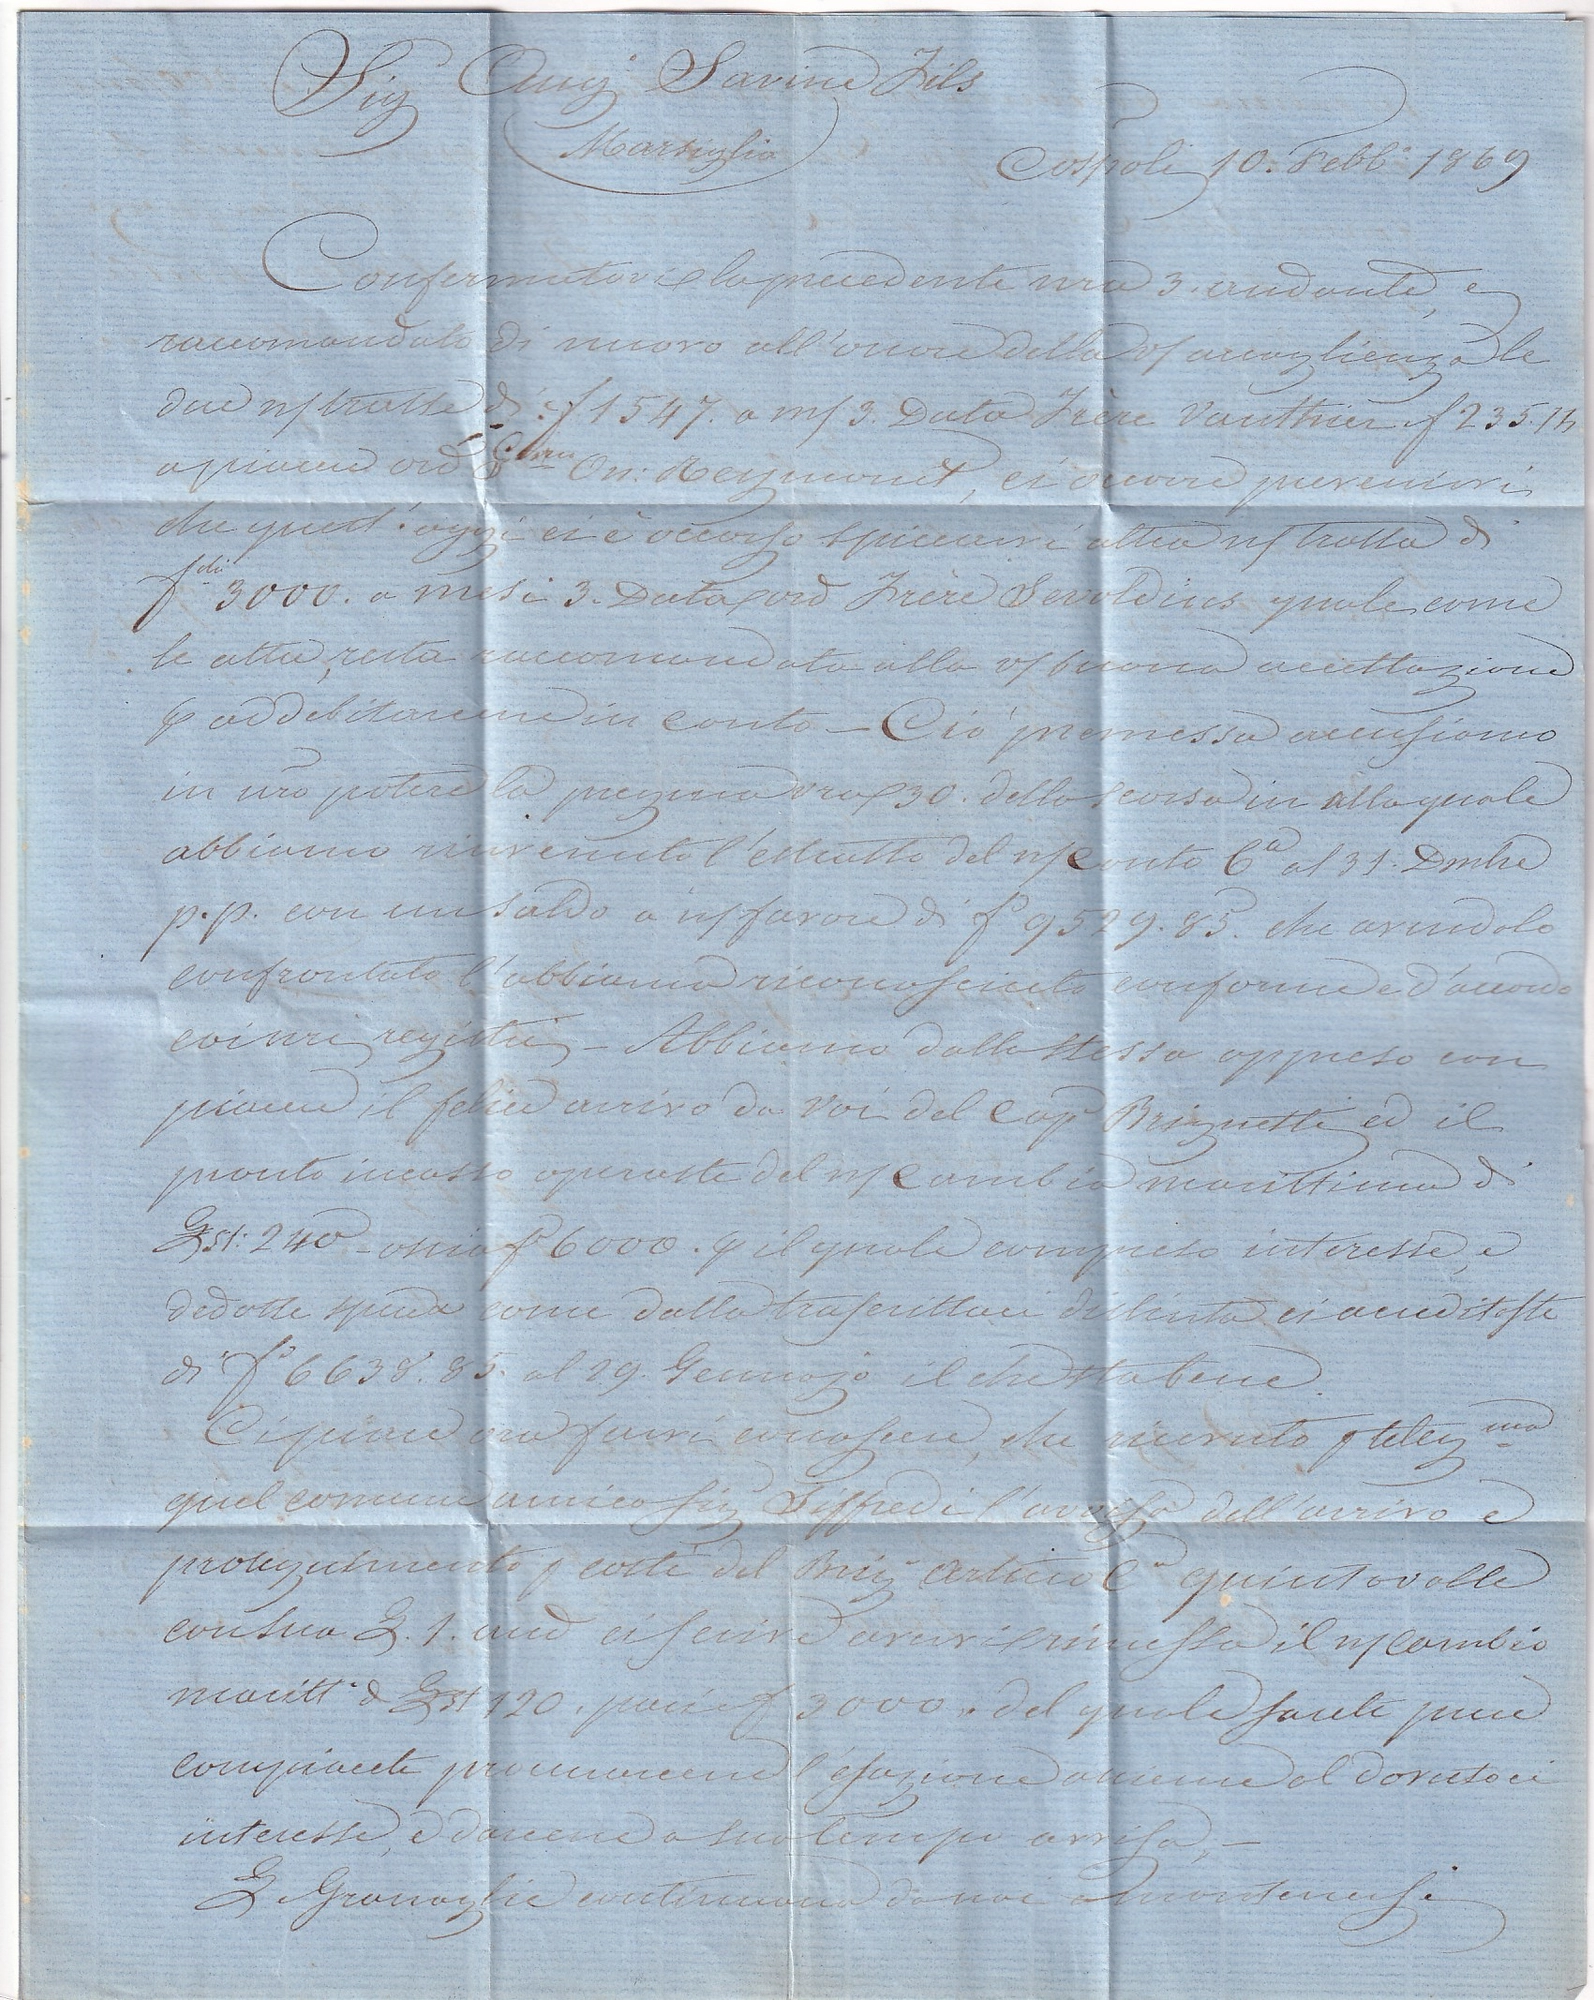 Sig Aug.o Savine Fils
Marsiglia
Cospoli 10. Febb.o 1869
Confermatovi la precedente nra 3. andante, e
raccomandato di nuovo all'onore della v/ accoglienza le
due n/ tratte di f 1547. a m/ 3. Data Frère Vauthier f 235.14
a piacere ord On: Reymonet, ci occorre prevenirvi
che quest'oggi ci è occorso spiccarvi altra n/ tratta di
f.chi 3000. a mesi 3. Data ord Frère Sevoldius quale come
le altre, resta raccomandata alla v/ buona accettazione
p addebitarcene in conto – Ciò premesso accusiamo
in nro potere la pregma vra 30. dello scorso in alla quale
abbiamo rinvenuto l'estratto del n/ Conto C.a al 31. Dmbre
p.p. con un saldo a n/ favore di f.i 9529.85. che avendolo
confrontato l'abbiamo riconosciuto conforme e d'accordo
coi nri registri – Abbiamo dalla stessa appreso con
piacere il felice arrivo da Voi del Cap.o Brignetti ed il
pronto incasso operaste del n/ Cambio marittimo di
Lst: 240 – ossia f.i 6000. p il quale compreso interesse, e
dedotte spese come dalla trascrittaci distinta ci accreditaste
di f.i 6638.85. al 29. Gennajo il che sta bene.
Ci piace ora farvi conoscere, che ricevuto p teleg.ma
quel comune amico Sig Siffredi l'avviso dell'arrivo e
proseguimento p costì del Brig.o Arturo C.n Quintavalle
con sua L. 1. and ci scrive avervi rimesso il n/ Cambio
maritt.o d Lst 120. pari f 3000. del quale sarete pure
compiacete procurarcene l'esazione assieme al dovutoci
interesse, e darcene a suo tempo avviso, –
L Granaglie continuano da noi a mantenersi